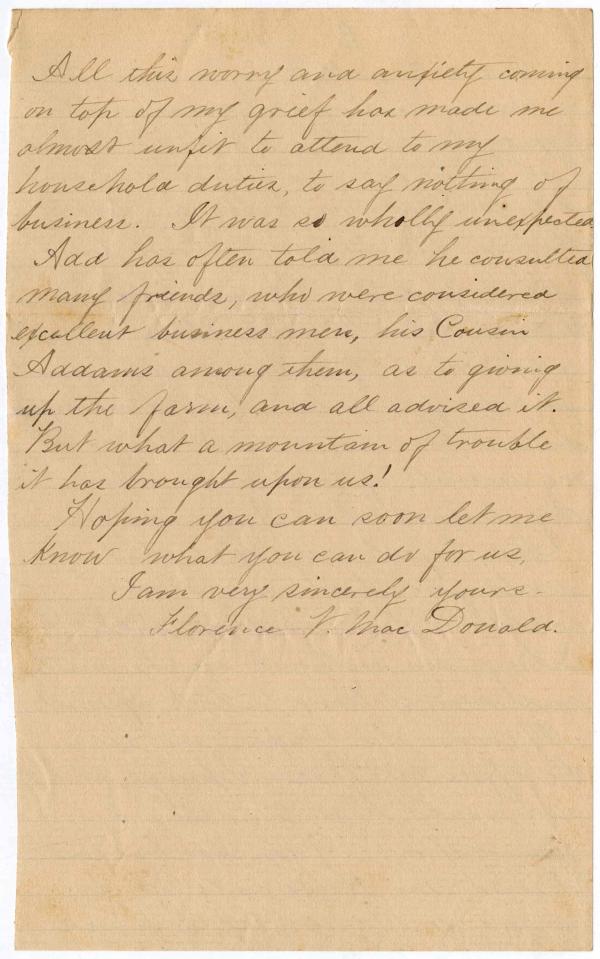 All this worry and anxiety coming
on top of my grief has made me
almost unfit to attend to my
household duties, to say nothing of
business. It was so wholly unexpected.
Add has often told me he consulted
many friends, who were considered
excellent business men, his Cousin
Addams among them, as to giving
up the farm, and all advised it.
But what a mountain of trouble
it has brought upon us!
Hoping you can soon let me
know what you can do for us,
I am very sincerely yours.
Florence V. Mac Donald.